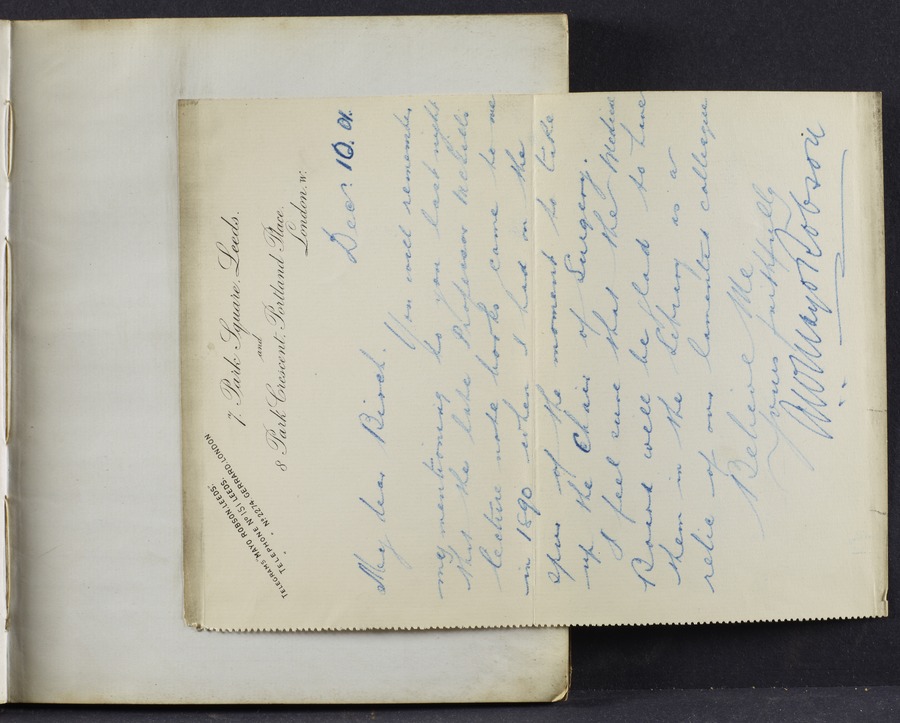 TELEGRAMS "MAYO ROBSON, LEEDS."
TELEPHONE Nº 151 LEEDS.
" Nº 2274 GERRARD, LONDON
7, Park Square, Leeds.
and
8 Park Crescent, Portland Place,
London. W.
Decr. 10. 01.
My dear Birch.
You will remember
my mentioning to you last night
that the late Professor
lecture note books came to me
in 1890 when I had on the
spur of the moment to take
up the Chair of Surgery.
I feel sure that the Medical
Board will be glad to have
them in the Library as a
relic of our lamented colleague
Believe Me
yours faithfully
Mayo Robson